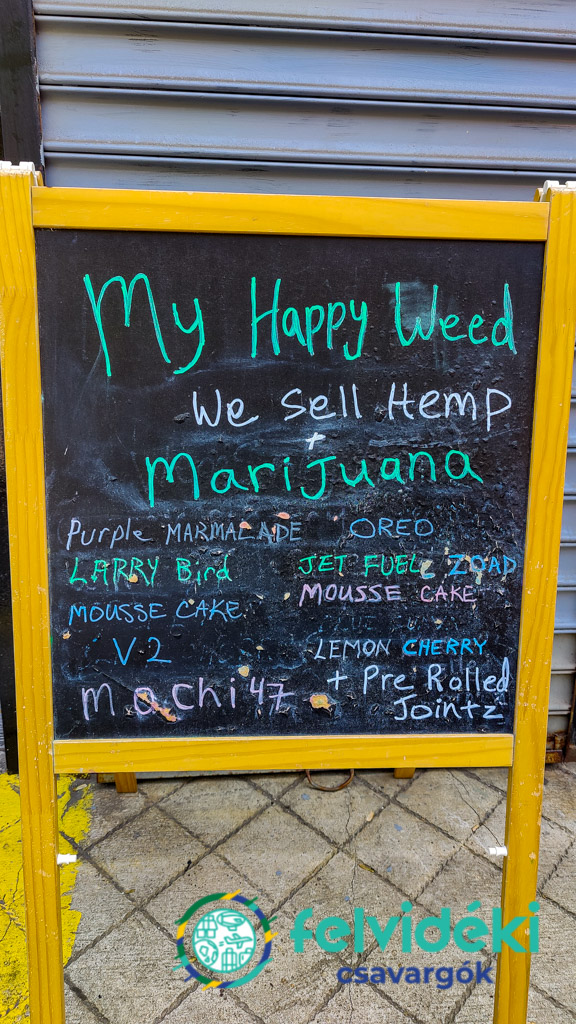 My Happy Weed
We Sell Hemp
+
Marijuana
Purple MARMALADE OREO
LARRY Bird JET FUEL
MOUSSE CAKE MOUSSE CAKE
V2 LEMON CHERRY
machi 47 + Pre Rolled
Jointz
felvidéki
csavargók